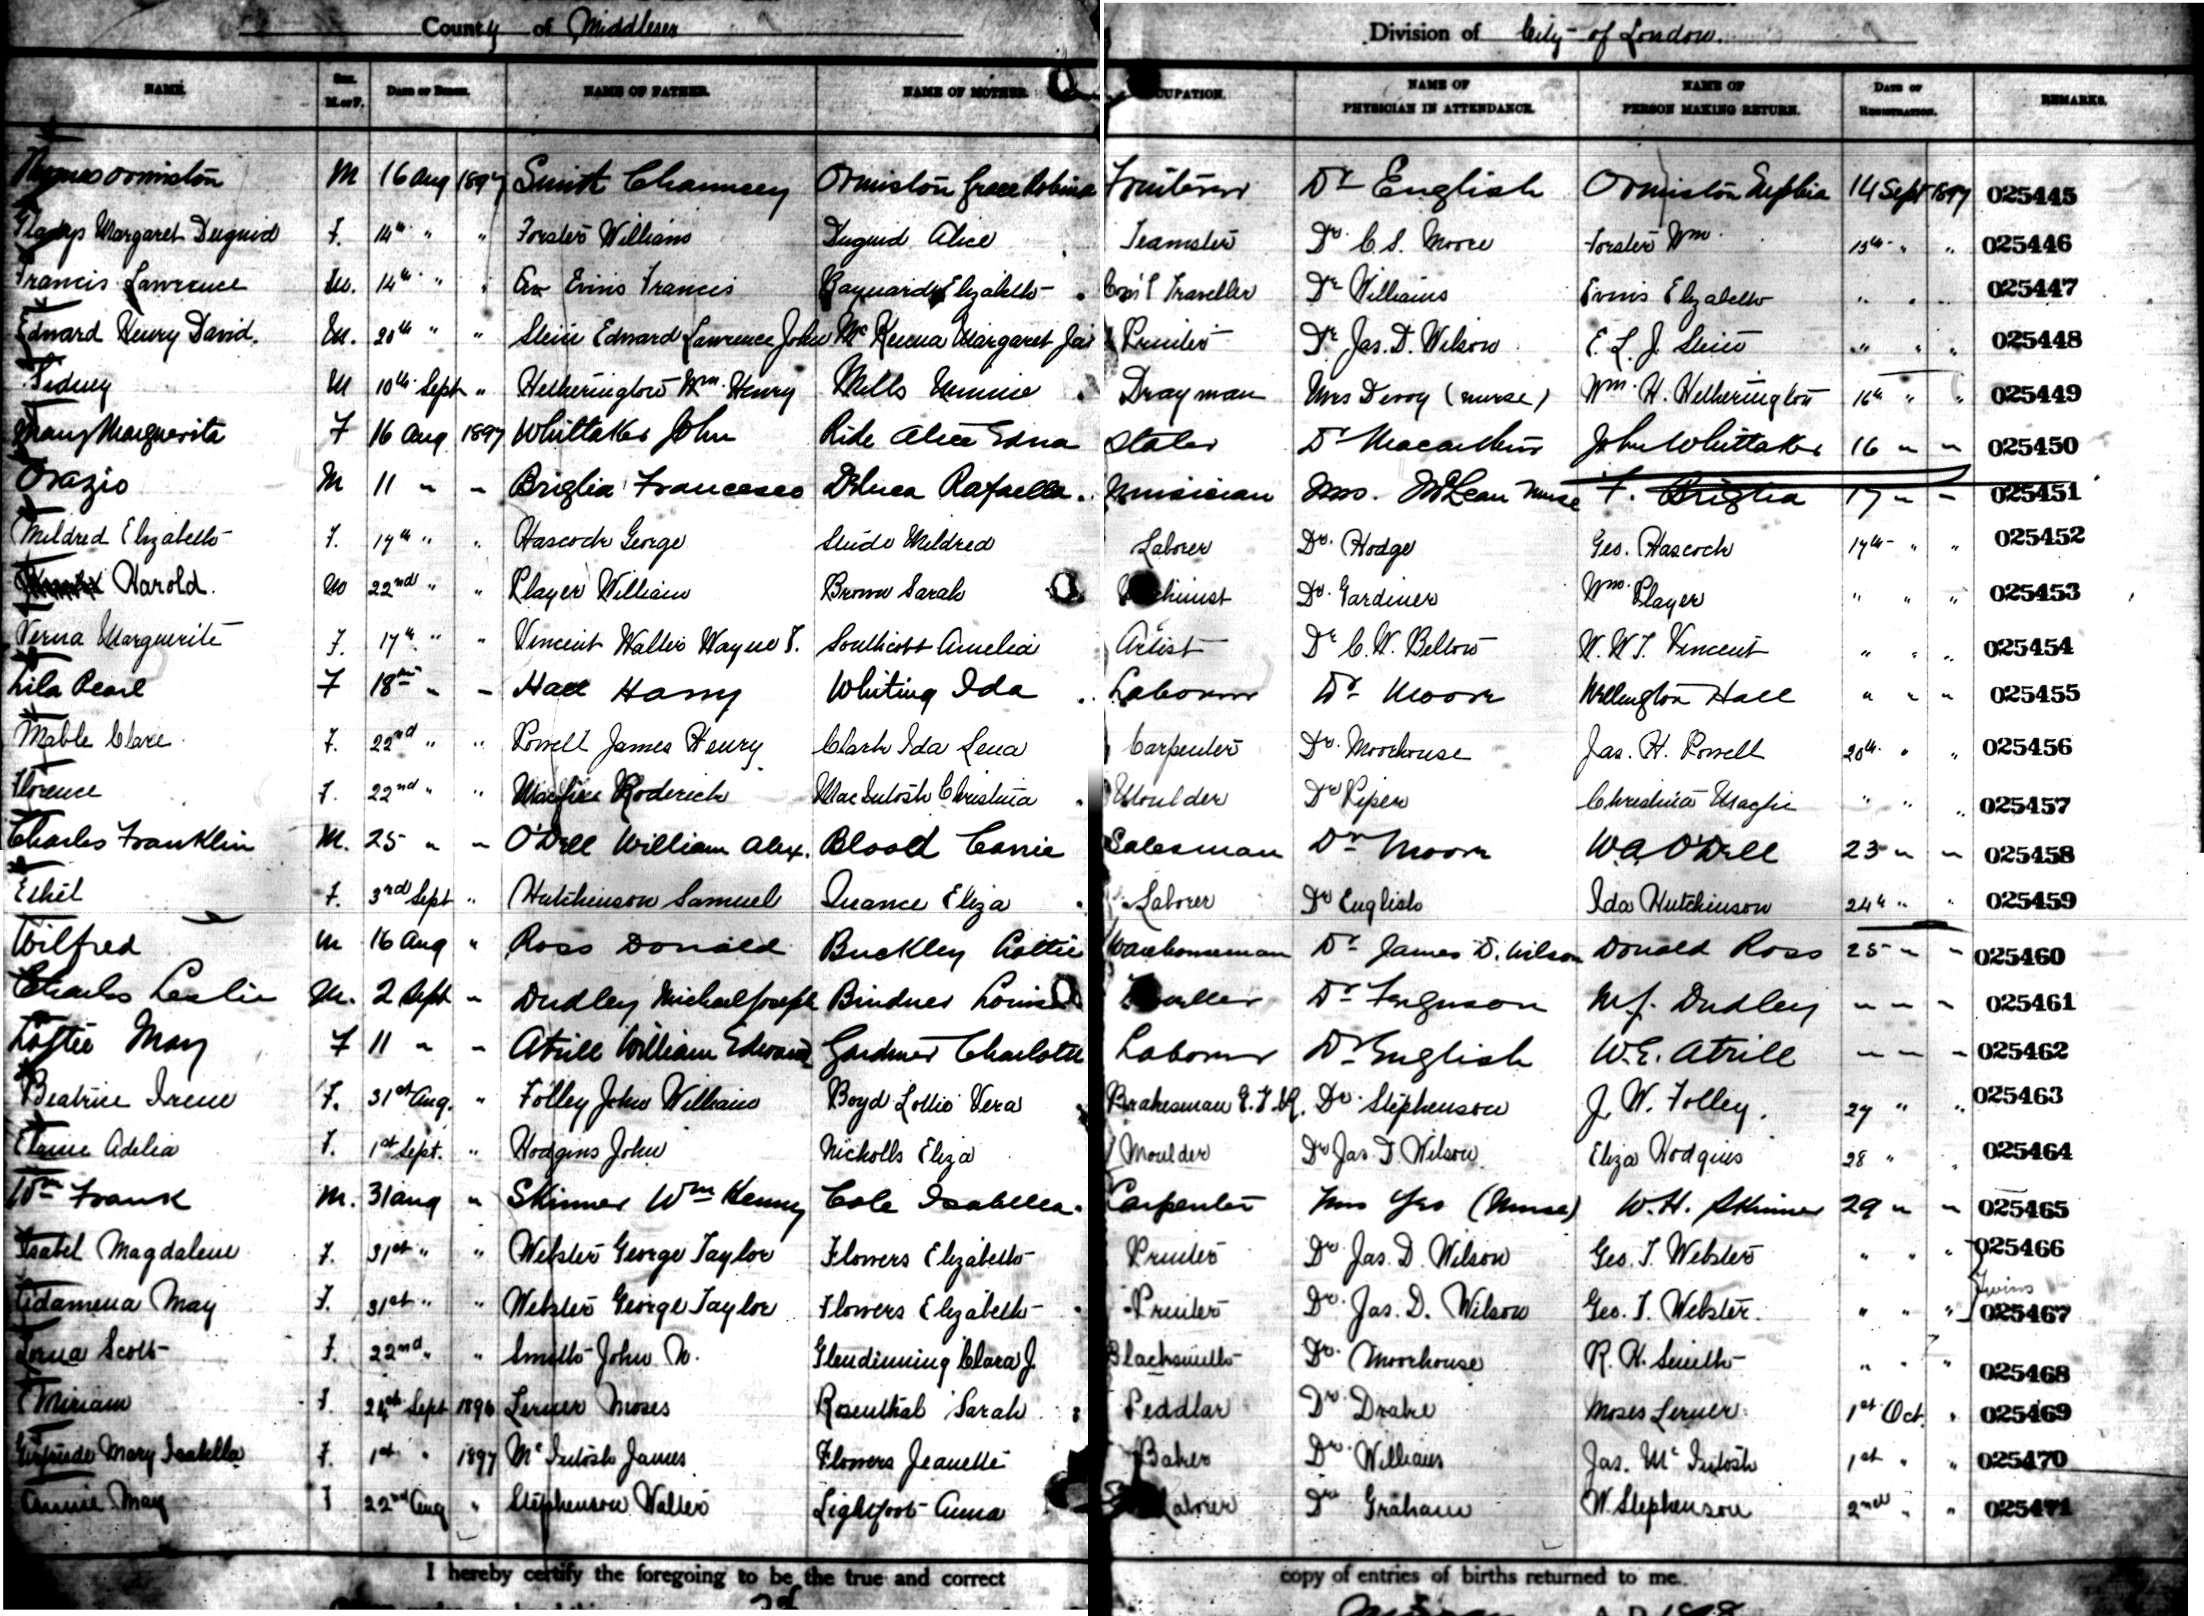 County of Middlesex Division of City of London.
NAME. Sex. M. or F. Date of Birth. NAME OF FATHER. NAME OF MOTHER. OCCUPATION. NAME OF PHYSICIAN IN ATTENDANCE. NAME OF PERSON MAKING RETURN. Date of Registration. REMARKS.
Thomas Ormiston M 16 Aug 1897 Smith Chauncey Ormiston Grace Robina Fruiterer Dr English Ormiston Sophia 14 Sept 1897 025445
Gladys Margaret Duguid F. 14th " " Forster William Duguid Alice Teamster Dr. C. S. Moore Forster Wm. 15th " " 025446
Francis Lawrence M. 14th " " Evins Francis Elizabeth Com'l Traveller Dr Williams Evins Elizabeth " " " 025447
Edward Henry David. M. 20th " " Stein Edward Lawrence John McKenna Margaret Printer Dr Jas. D. Wilson E. L. J. Stein " " " 025448
Sidney M 10th Sept " Hetherington Wm. Henry Mills Drayman Mrs Devoy (nurse) Wm. H. Hetherington 16th " " 025449
Marguerita F 16 Aug 1897 Whittaker John Ride Alice Edna Dr Macarthur John Whittaker 16 " " 025450
Orazio M 11 " " Briglia Francesco Deluca Rafaella. Musician Mrs. McLean Nurse F. Briglia 17 " " 025451
Mildred Elizabeth F. 17th " " George Mildred Laborer Dr. Hodge Geo. 17th " " 025452
Harold. M 22nd " " Player William Brown Sarah Machinist Dr. Gardiner Wm. Player " " " 025453
Verna Marguerite F. 17th " " Vincent Walter Wayne T. Southcott Amelia Artist Dr C. W. Belton W. W. T. Vincent " " " 025454
Lila Pearl F 18th " " Hall Harry Whiting Ida Laborer Dr Moore Wellington Hall " " " 025455
Mable Clare F. 22nd " " Powell James Henry Clark Ida Lena Carpenter Dr. Moorhouse Jas. H. Powell 20th " " 025456
Florence F. 22nd " " Macfie Roderick MacIntosh Christina Moulder Dr Piper Christina Macfie " " " 025457
Charles Franklin M. 25 " " O'Dell William Alex. Blood Carrie Salesman Dr Moore W A O'Dell 23 " " 025458
Ethel F. 3rd Sept " Hutchinson Samuel Quance Eliza Laborer Dr English Ida Hutchinson 24th " " 025459
Wilfred M 16 Aug " Ross Donald Buckley Lottie Warehouseman Dr James D. Wilson Donald Ross 25 " " 025460
Charles Leslie M. 2 Sept " Dudley Michael Joseph Bindner Louisa Dr Ferguson M J. Dudley " " " 025461
Lottie May F 11 " " Atrill William Edward Gardner Charlotte Laborer Dr English W. E. Atrill " " " 025462
Beatrice Irene F. 31st Aug. " Folley John William Boyd Lottie Vera Brakesman G. T. R. Dr. Stephenson J. W. Folley. 27 " " 025463
Adelia F. 1st Sept. " Hodgins John Nicholls Eliza Moulder Dr Jas. D. Wilson Eliza Hodgins 28 " " 025464
Wm Frank M. 31 Aug " Skinner Wm Henry Cole Isabella. Carpenter Mrs Yeo (Nurse) W. H. Skinner 29 " " 025465
Isabel Magdalene F. 31st " " Webster George Taylor Flowers Elizabeth Printer Dr. Jas. D. Wilson Geo. T. Webster " " " 025466
Twins
Adamena May F. 31st " " Webster George Taylor Flowers Elizabeth Printer Dr. Jas. D. Wilson Geo. T. Webster. " " " 025467
Lorna Scott F. 22nd " " Smith John Glendinning Clara J. Blacksmith Dr. Moorhouse R. H. Smith " " " 025468
Miriam F. 24th Sept 1896 Lerner Moses Rosenthal Sarah Peddlar Dr. Drake Moses Lerner 1st Oct. " 025469
Gertrude Mary Isabella F. 1st " 1897 McIntosh James Flowers Jeanette Baker Dr. Williams Jas. McIntosh 1st " " 025470
Annie May F 22nd Aug " Stephenson Walter Lightfoot Anna Laborer Dr Graham W. Stephenson 2nd " " 025471
I hereby certify the foregoing to be the true and correct copy of entries of births returned to me.